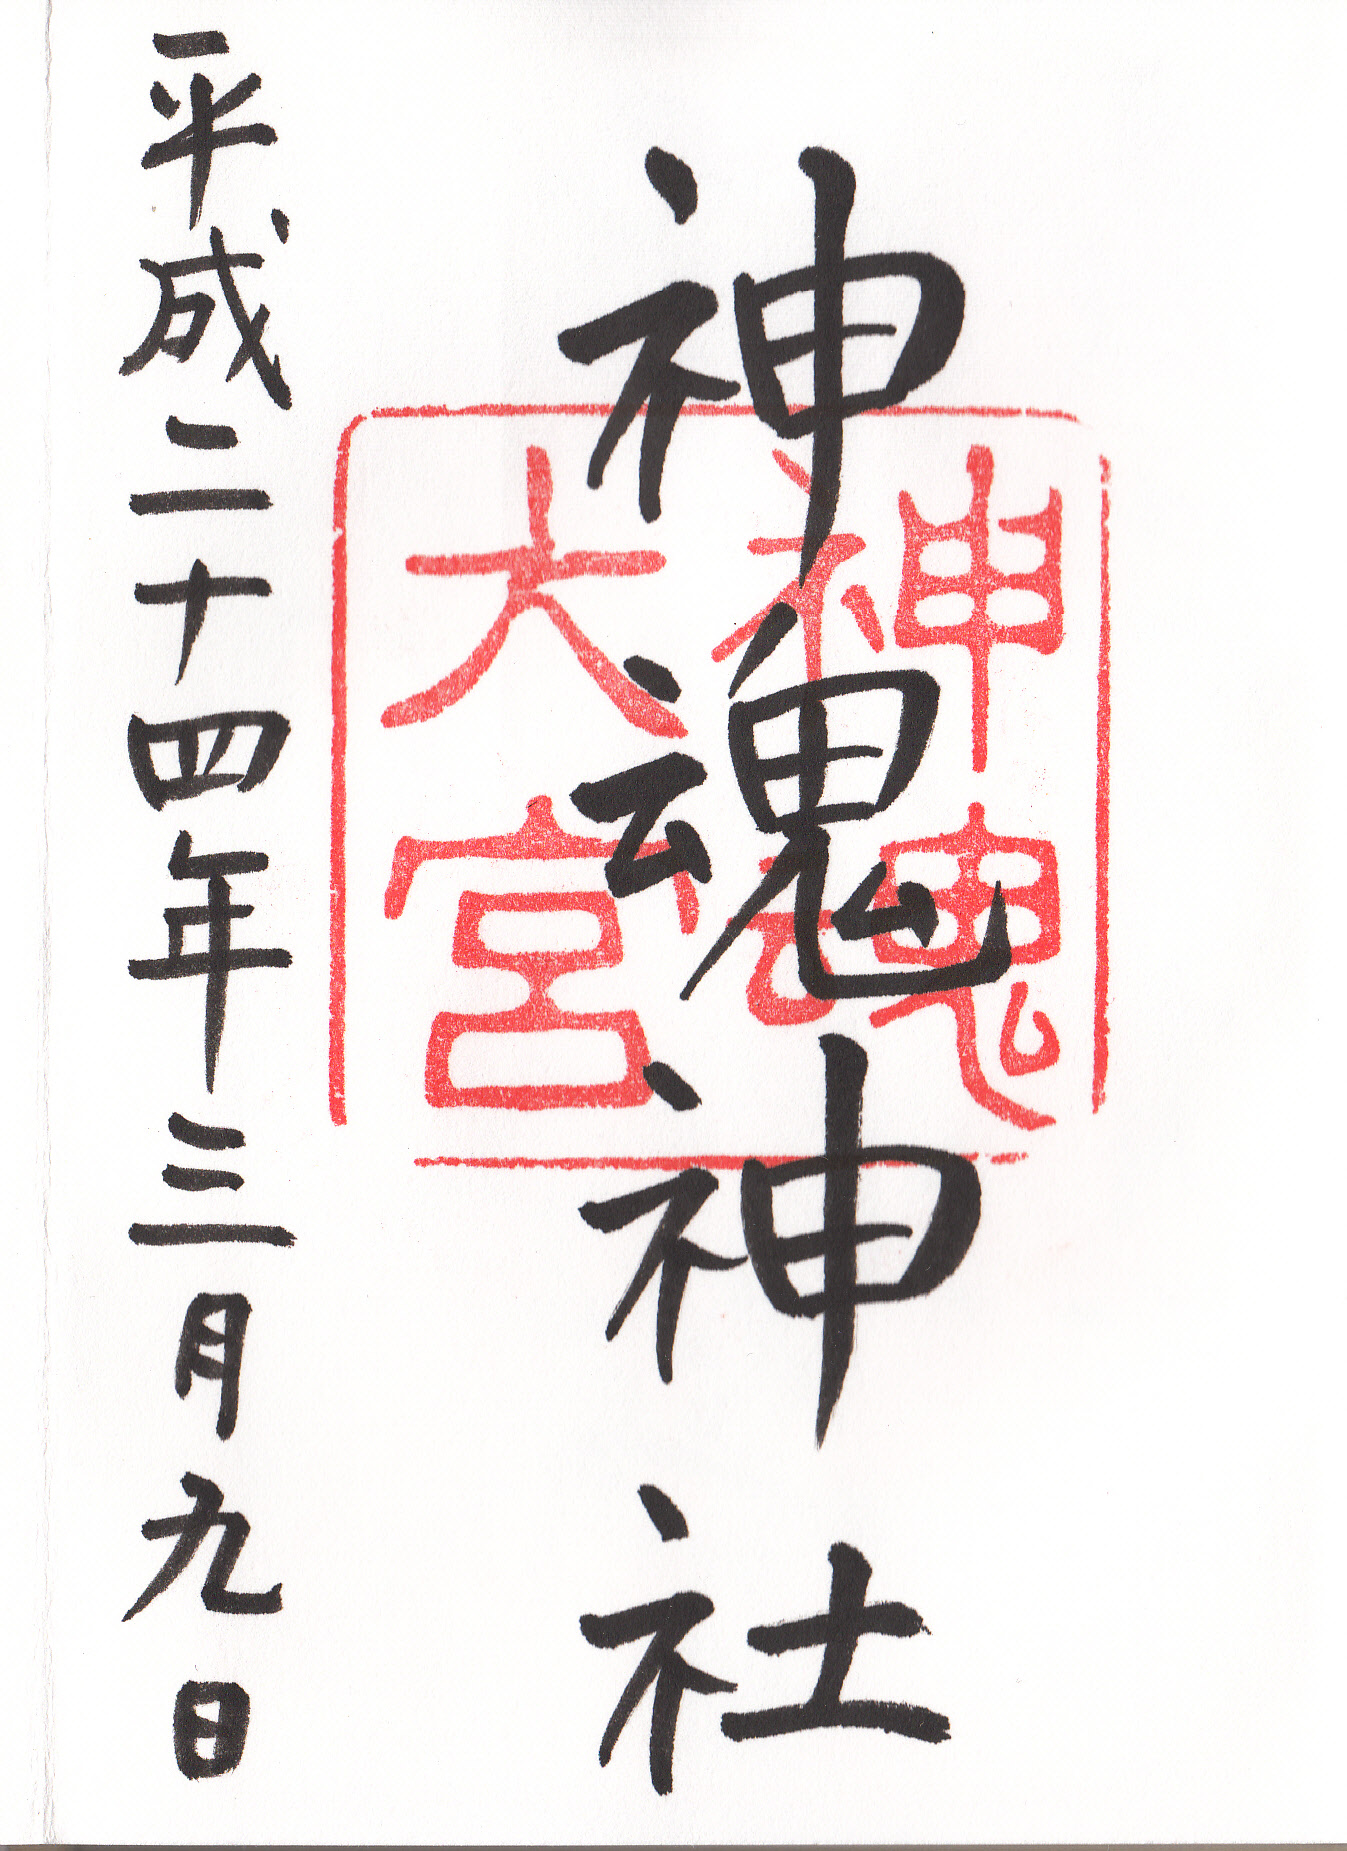 神魂神社
神魂
大宮
平成二十四年三月九日